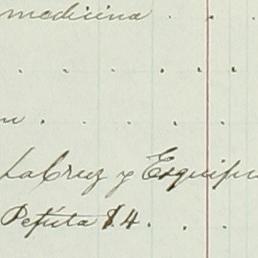 medicina . .
. . . . . .
. . . .
LaCruz y Esquipu
Petita $4. . .